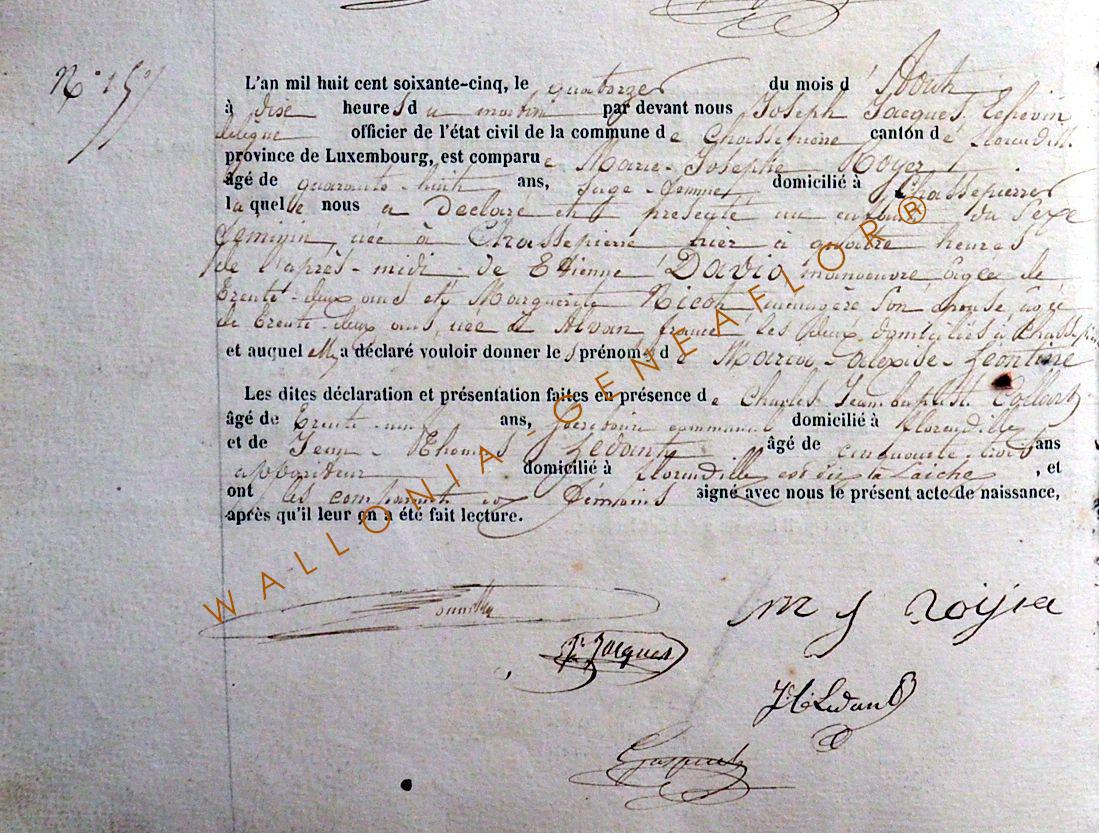 N° 15
L'an mil huit cent soixante-cinq, le quatorze du mois d' Août
à dix heures du matin par devant nous Joseph Jacques, Echevin
délégué officier de l'état civil de la commune de Chassepierre canton de Florenville
province de Luxembourg, est comparue Marie-Josephe Royer
âgé de quarante-huit ans, Sage-femme domicilié à Chassepierre
laquelle nous a Declaré et présenté un enfant du Sexe
feminin, née à Chassepierre hier à quatre heures
de l'après-midi de Etienne David manoeuvre âgée de
trente-deux ans et Marguerite Nicot menagère Son épouse, agée
de trente-deux ans, née à france les deux domiciliés à
et auquel elle a déclaré vouloir donner les prénoms de Maria-alexise-Leontine
Les dites déclaration et présentation faites en présence de Charles Jean baptiste
âgé de trente ans, Secrétaire communal domicilié à florenville
et de Jean-Thomas Ledant âgé de cinquante-trois ans
domicilié à florenville est dit La Laiche, et
ont les comparants et témoins signé avec nous le présent acte de naissance,
après qu'il leur en a été fait lecture.
WALLONIA-GENEAFLOR®
m J roijer
Jques
J Ledant